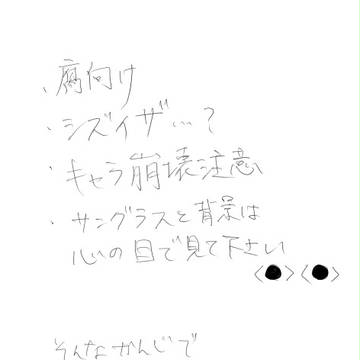 ・腐向け
・シズイザ…?
・キャラ崩壊注意
・サングラスと背景は
心の目で見て下さい
<●><●>
そんなかんじで